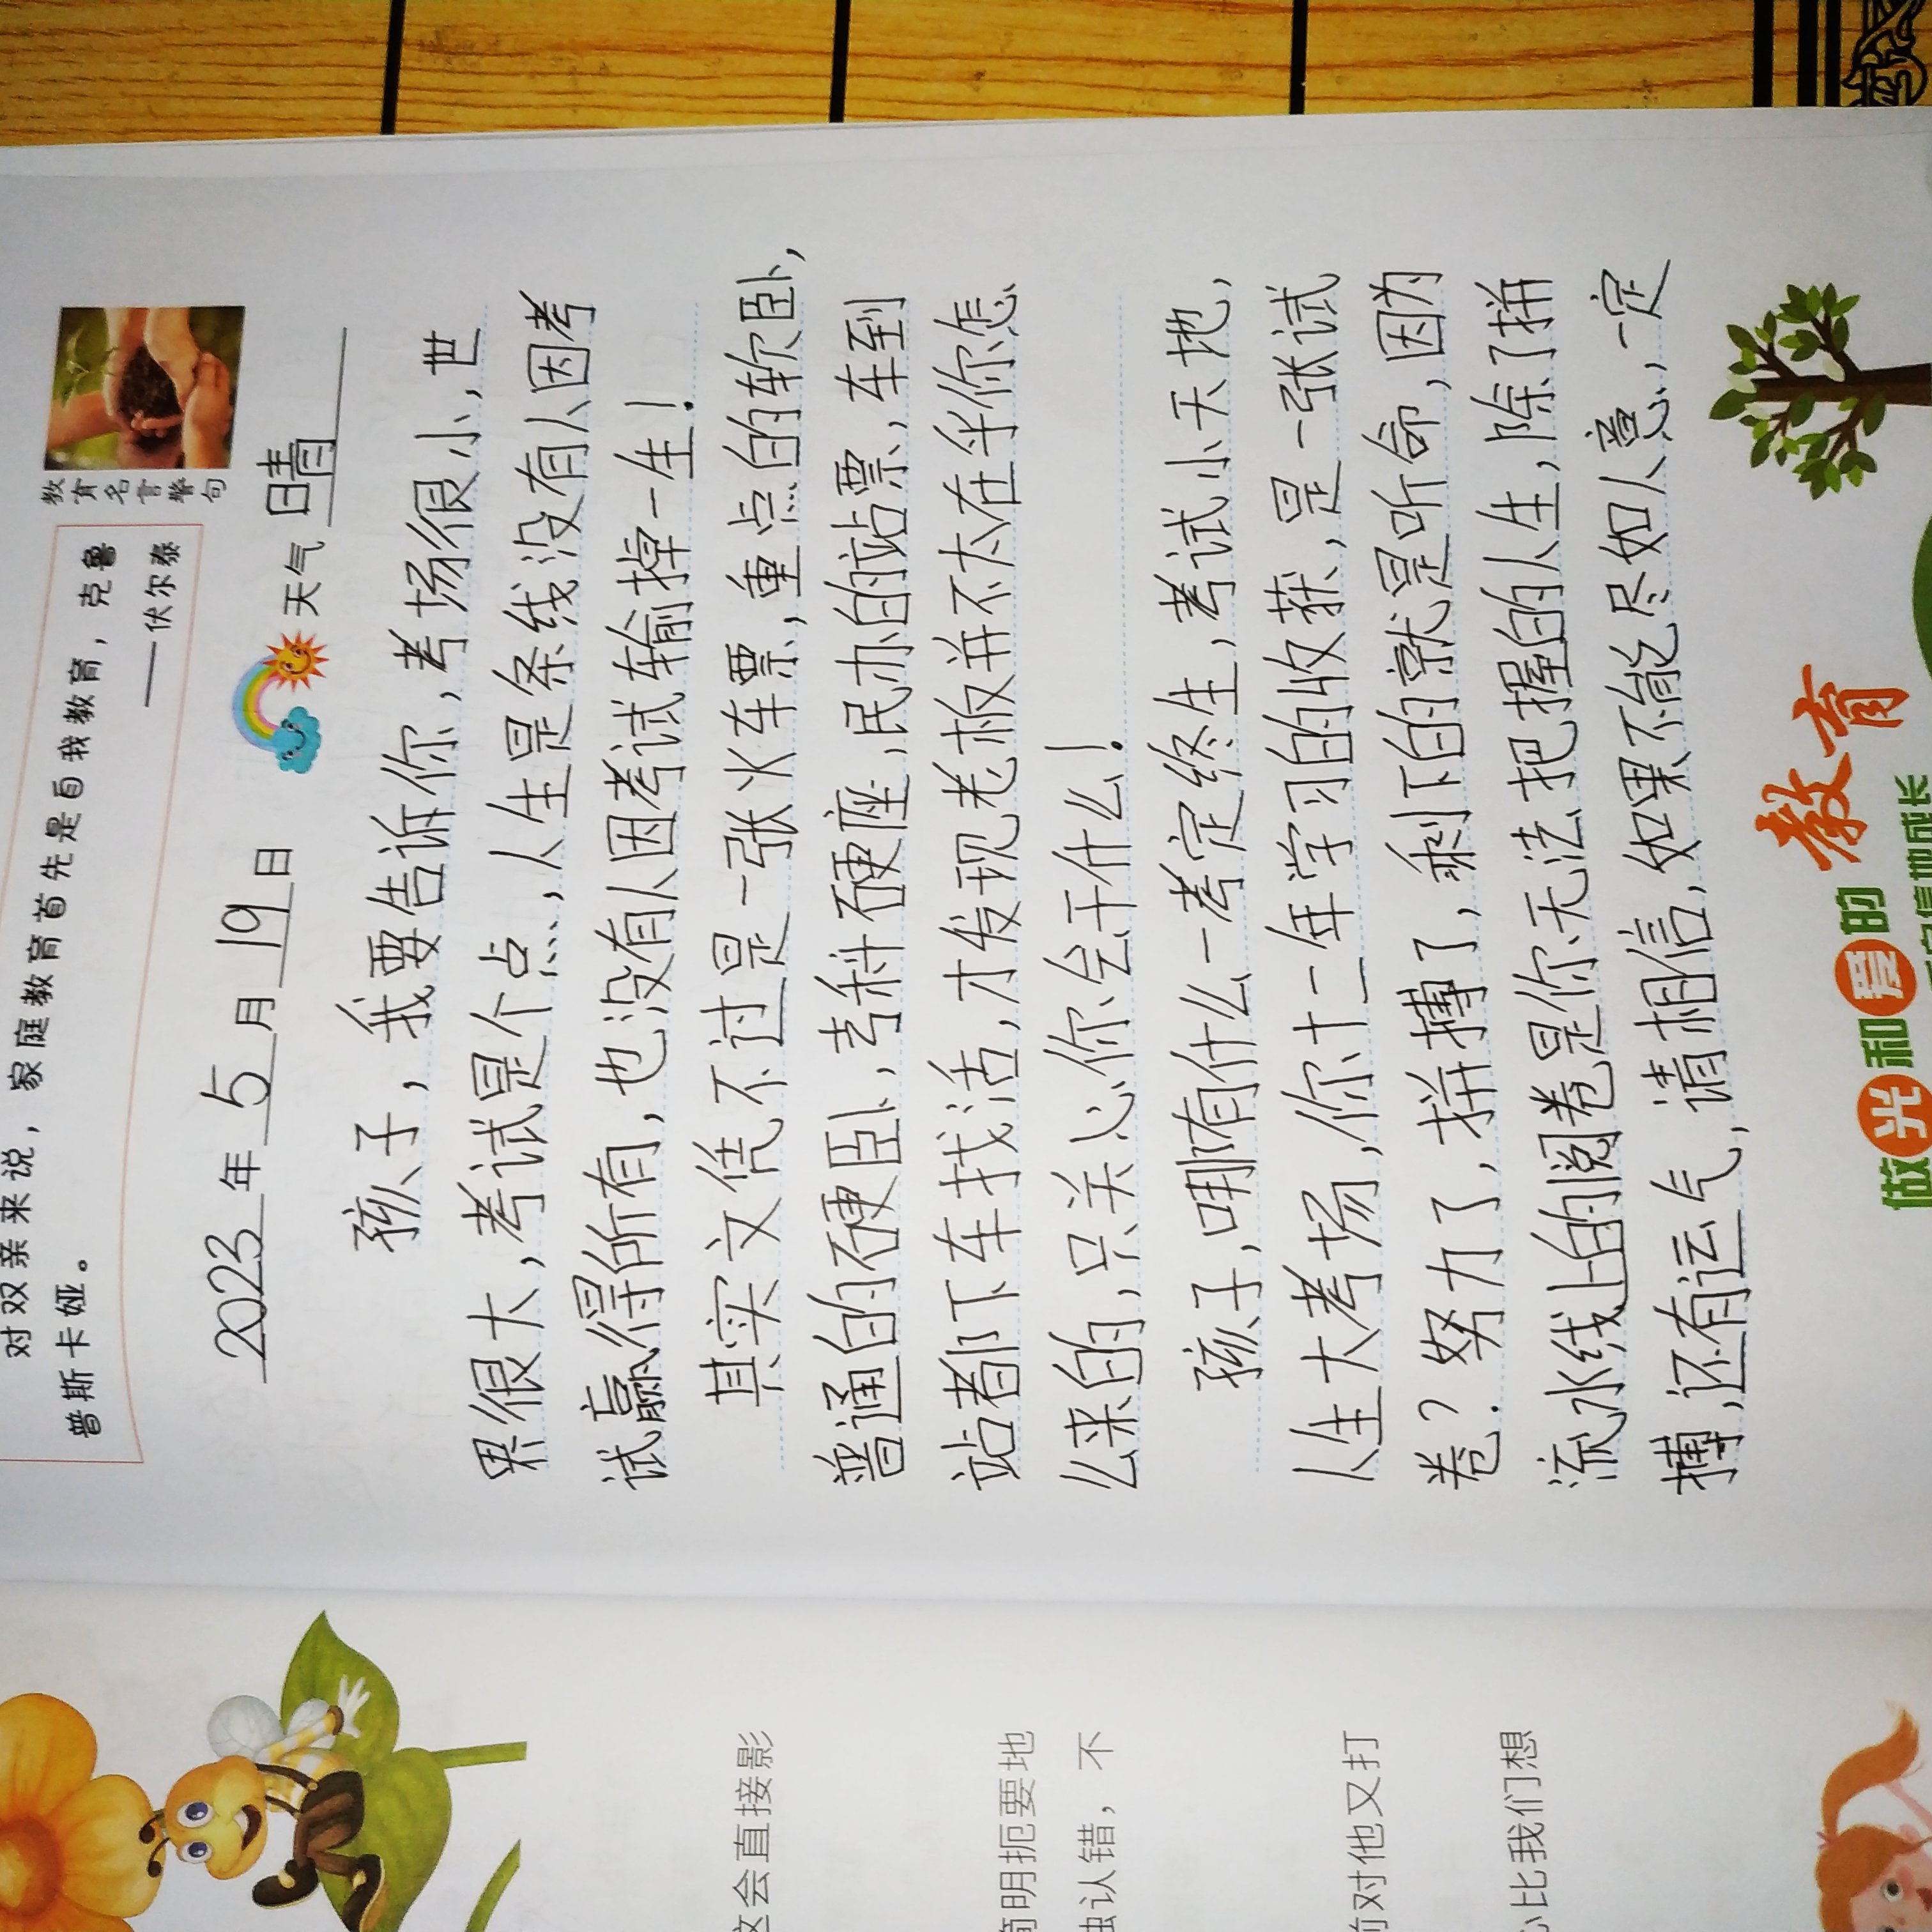 对双亲来说，家庭教育首先是自我教育，克鲁
普斯卡娅。
——伏尔泰
教育名言警句
2023年5月19日 天气 晴
孩子，我要告诉你，考场很小，世
界很大，考试是个点，人生是条线没有人因考
试赢得所有，也没有人因考试输掉一生！
其实文凭不过是一张火车票，重点的软卧，
普通的硬卧，专科硬座，民办的站票，车到
站都下车找活，才发现老板并不太在乎你怎
么来的，只关心你会干什么！
孩子，哪有什么一考定终生，考试小天地，
人生大考场，你十二年学习的收获，是一张试
卷？努力了，拼搏了，剩下的就是听命，因为
流水线上的阅卷是你无法把握的人生，除了拼
搏，还有运气，请相信，如果不能尽如人意，一定
做光和爱的教育
这会直接影
简明扼要地
认错，不
前对他又打
心比我们想